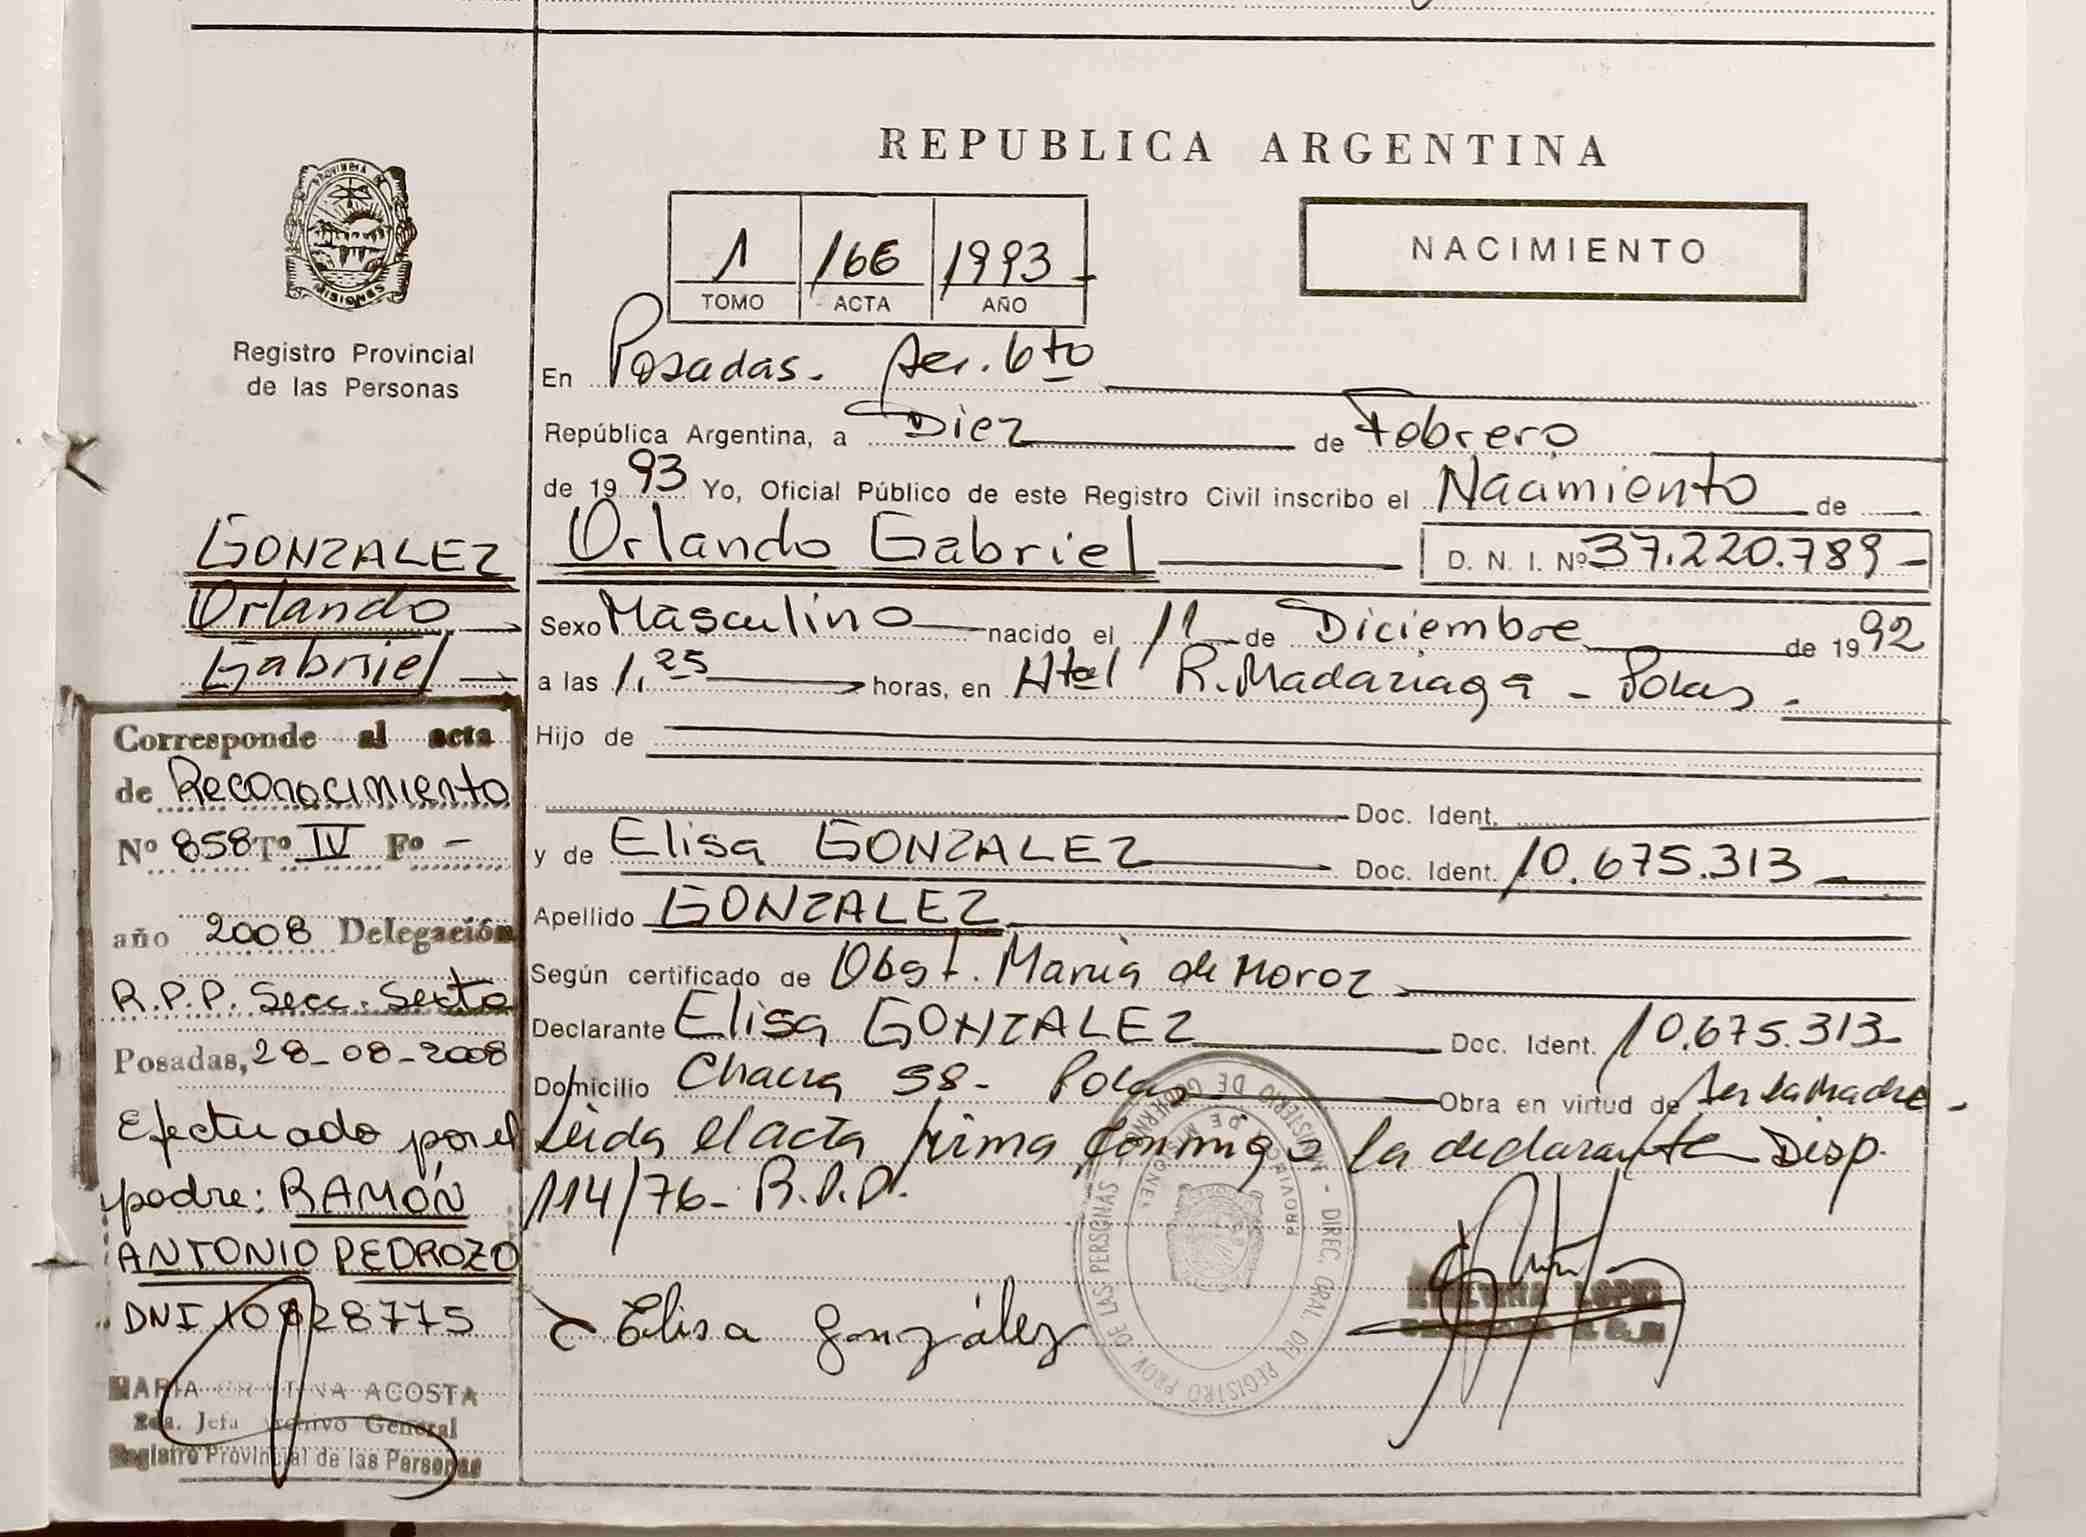 REPUBLICA ARGENTINA
PROVINCIA DE
MISIONES
Registro Provincial
de las Personas
1 166 1993
TOMO ACTA AÑO
NACIMIENTO
En Posadas - Sec. 6to
República Argentina, a Diez de Febrero
de 1993 Yo, Oficial Público de este Registro Civil inscribo el Nacimiento de
Orlando Gabriel D. N. I. Nº 37.220.789-
Sexo Masculino nacido el 11 de Diciembre de 1992
a las 1,25 horas, en Htal R. Madariaga - Pdas -
Hijo de
Doc. Ident.
y de Elisa GONZALEZ Doc. Ident. 10.675.313
Apellido GONZALEZ
Según certificado de Obst. Maria de Moroz
Declarante Elisa GONZALEZ Doc. Ident. 10.675.313-
Domicilio Chacra 98 - Pdas Obra en virtud de Ser la Madre -
Leida el acta firma conmigo la declarante Disp.
114/76 - R.P.P.
Elisa González
LOPEZ
MINISTERIO DE GOBIERNO - DIREC. GRAL. DEL REGISTRO PROV. DE LAS PERSONAS
PROVINCIA DE MISIONES
GONZALEZ
Orlando
Gabriel
Corresponde al acta
de Reconocimiento
Nº 858 Tº IV Fº -
año 2008 Delegación
R.P.P. Secc. Sexta
Posadas, 28-08-2008
Efectuado por el
padre: RAMÓN
ANTONIO PEDROZO
DNI 10828775
MARIA CRISTINA ACOSTA
2da. Jefa Archivo General
Registro Provincial de las Personas